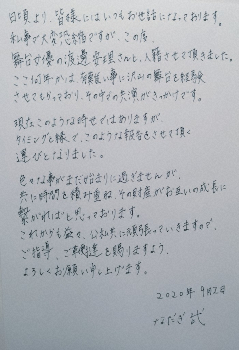 日頃より、皆様にはいつもお世話になっております。
私事で大変恐縮ですが、この度、
舞台女優の渡邊安理さんと、入籍させて頂きました。
ここ何年かは、有難い事に沢山の舞台を経験
させてもらっており、その中での共演がきっかけです。
現在このような時世ではありますが、
タイミングと縁で、このような報告をさせて頂く
運びとなりました。
色々な事がまだ始まりに過ぎませんが、
共に時間を積み重ね、その財産がお互いの成長に
繋がればと思っております。
これからも益々、公私共に頑張っていきますので、
ご指導、ご鞭撻を賜りますよう、
よろしくお願い申し上げます。
2020年9月2日
なだぎ武